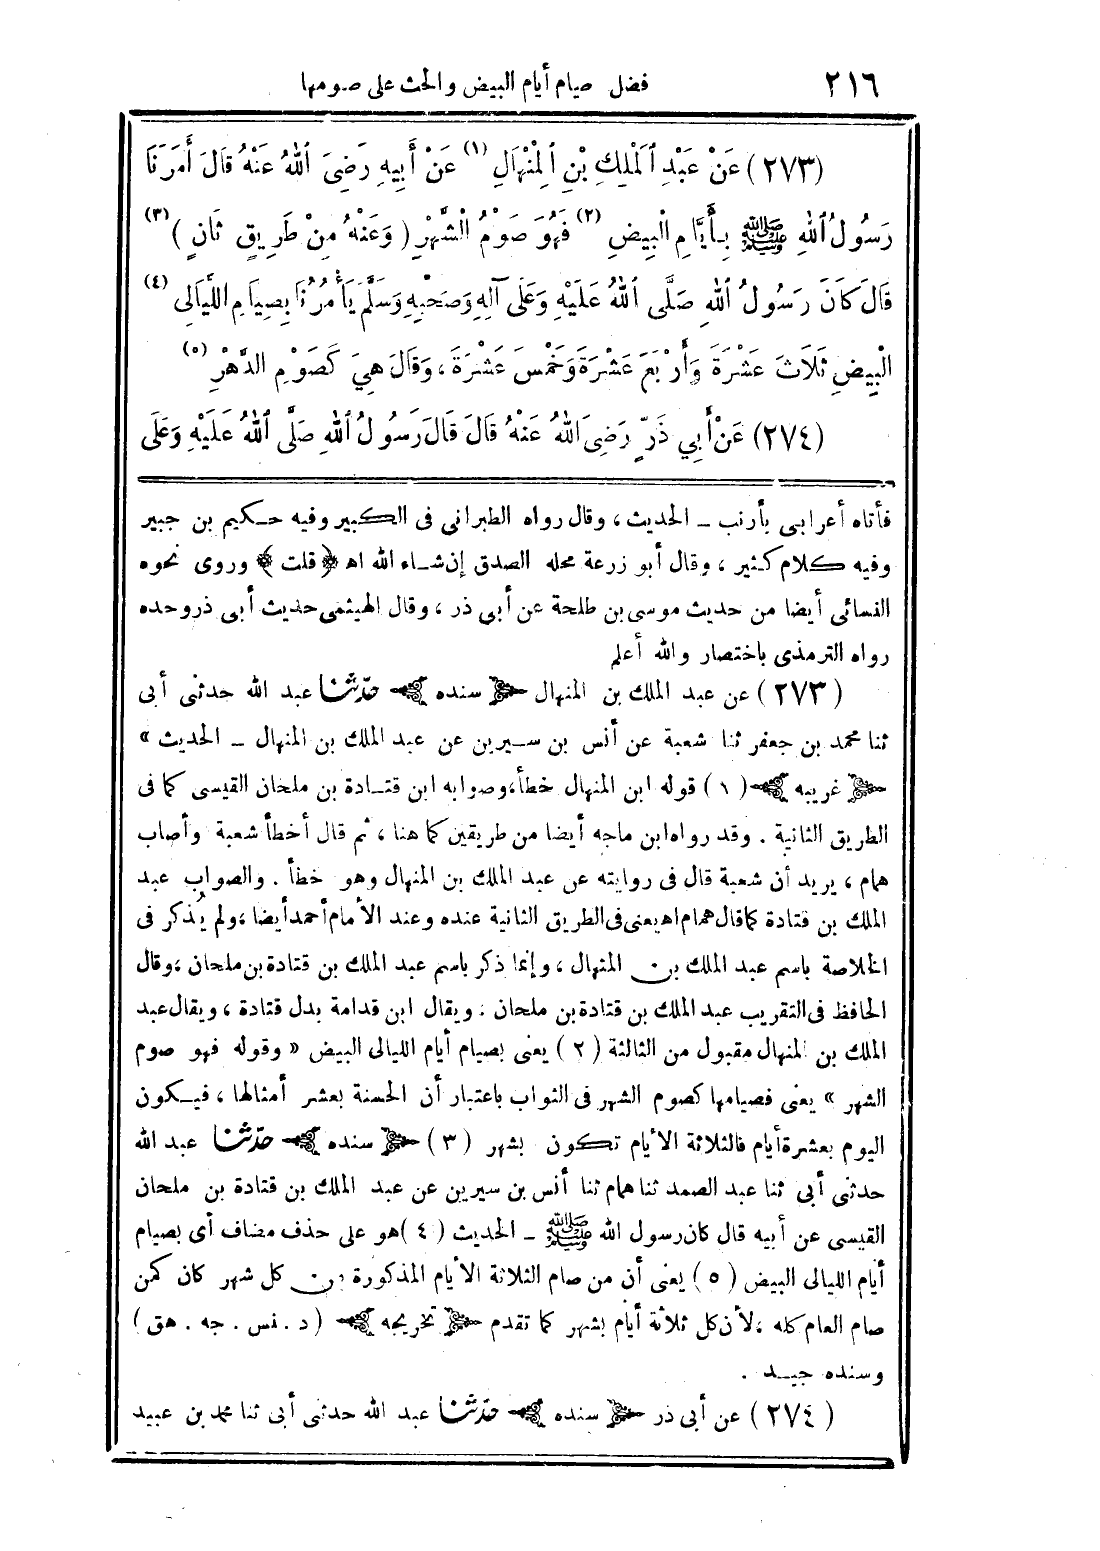 ٢١٦ فضل صيام أيام البيض والحث على صومها
(٢٧٣) عَنْ عَبْدِ ٱلْمَلِكِ بْنِ ٱلْمِنْهَالِ (١) عَنْ أَبِيهِ رَضِيَ ٱللهُ عَنْهُ قَالَ أَمَرَنَا
رَسُولُ ٱللهِ ﷺ بِأَيَّامِ الْبِيضِ (٢) فَهُوَ صَوْمُ الشَّهْرِ (وَعَنْهُ مِنْ طَرِيقٍ ثَانٍ) (٣)
قَالَ كَانَ رَسُولُ ٱللهِ صَلَّى ٱللهُ عَلَيْهِ وَعَلَى آلِهِ وَصَحْبِهِ وَسَلَّمَ يَأْمُرُنَا بِصِيَامِ اللَّيَالِى (٤)
الْبِيضِ ثَلَاثَ عَشْرَةَ وَأَرْبَعَ عَشْرَةَ وَخَمْسَ عَشْرَةَ، وَقَالَ هِيَ كَصَوْمِ الدَّهْرِ (٥)
(٢٧٤) عَنْ أَبِي ذَرٍّ رَضِىَ ٱللهُ عَنْهُ قَالَ قَالَ رَسُولُ ٱللهِ صَلَّى ٱللهُ عَلَيْهِ وَعَلَى
فأتاه أعرابى بأرنب ــ الحديث، وقال رواه الطبرانى فى الكبير وفيه حكيم بن جبير
وفيه كلام كثير، وقال أبو زرعة محله الصدق إن شاء الله اهـ ﴿قلت﴾ وروى نحوه
النسائى أيضا من حديث موسى بن طلحة عن أبى ذر، وقال الهيثمى حديث أبى ذر وحده
رواه الترمذى باختصار والله أعلم
(٢٧٣) عن عبد الملك بن المنهال ﴿سنده﴾ حدّثنا عبد الله حدثنى أبى
ثنا محمد بن جعفر ثنا شعبة عن أنس بن سيرين عن عبد الملك بن المنهال ــ الحديث »
﴿غريبه﴾ (١) قوله ابن المنهال خطأ، وصوابه ابن قتادة بن ملحان القيسى كما فى
الطريق الثانية . وقد رواه ابن ماجه أيضا من طريقين كما هنا، ثم قال أخطأ شعبة وأصاب
همام، يريد أن شعبة قال فى روايته عن عبد الملك بن المنهال وهو خطأ . والصواب عبد
الملك بن قتادة كما قال همام اهـ يعنى فى الطريق الثانية عنده وعند الأمام أحمد أيضا، ولم يُذكر فى
الخلاصة باسم عبد الملك بن المنهال، وإنما ذكر باسم عبد الملك بن قتادة بن ملحان، وقال
الحافظ فى التقريب عبد الملك بن قتادة بن ملحان : ويقال ابن قدامة بدل قتادة، ويقال عبد
الملك بن المنهال مقبول من الثالثة (٢) يعنى بصيام أيام الليالى البيض « وقوله فهو صوم
الشهر » يعنى فصيامها كصوم الشهر فى الثواب باعتبار أن الحسنة بعشر أمثالها، فيكون
اليوم بعشرة أيام فالثلاثة الأيام تكون بشهر (٣) ﴿سنده﴾ حدّثنا عبد الله
حدثنى أبى ثنا عبد الصمد ثنا همام ثنا أنس بن سيرين عن عبد الملك بن قتادة بن ملحان
القيسى عن أبيه قال كان رسول الله ﷺ ــ الحديث (٤) هو على حذف مضاف أى بصيام
أيام الليالى البيض (٥) يعنى أن من صام الثلاثة الأيام المذكورة من كل شهر كان كمن
صام العام كله، لأن كل ثلاثة أيام بشهر كما تقدم ﴿تخريجه﴾ (د . نس . جه . هق)
وسنده جيد .
(٢٧٤) عن أبى ذر ﴿سنده﴾ حدّثنا عبد الله حدثنى أبى ثنا محمد بن عبيد